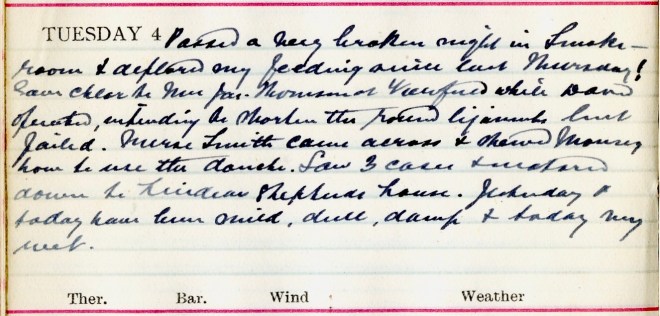 TUESDAY 4 Passed a very broken night in Smoke-
room & deplored my feeding since last Thursday!
Gave chlor to Mrs Jas. Thomson at while David
operated, intending to shorten the round ligaments but
failed. Nurse Smith came across & showed Mousey
how to use the douche. Saw 3 cases & motored
down to Shepherds house. Yesterday &
today have been mild, dull, damp & today very
wet.
Ther. Bar. Wind Weather